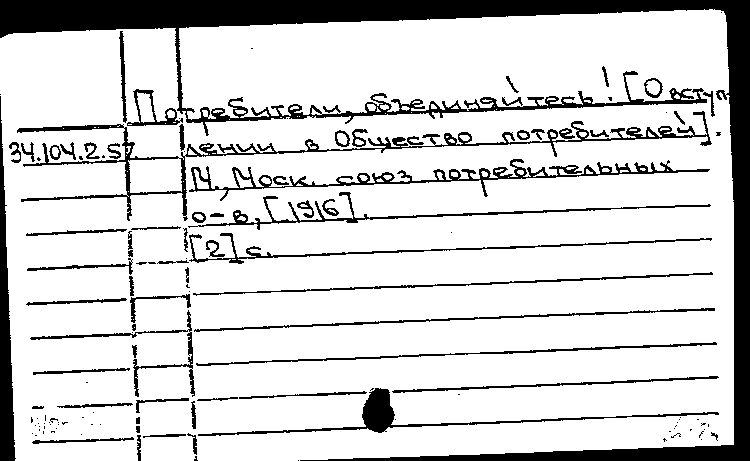 Потребители, объединяйтесь! [О вступ-
34.104.2.57 лении в Общество потребителей].
М., Моск. союз потребительных
о-в, [1916].
[2] с.